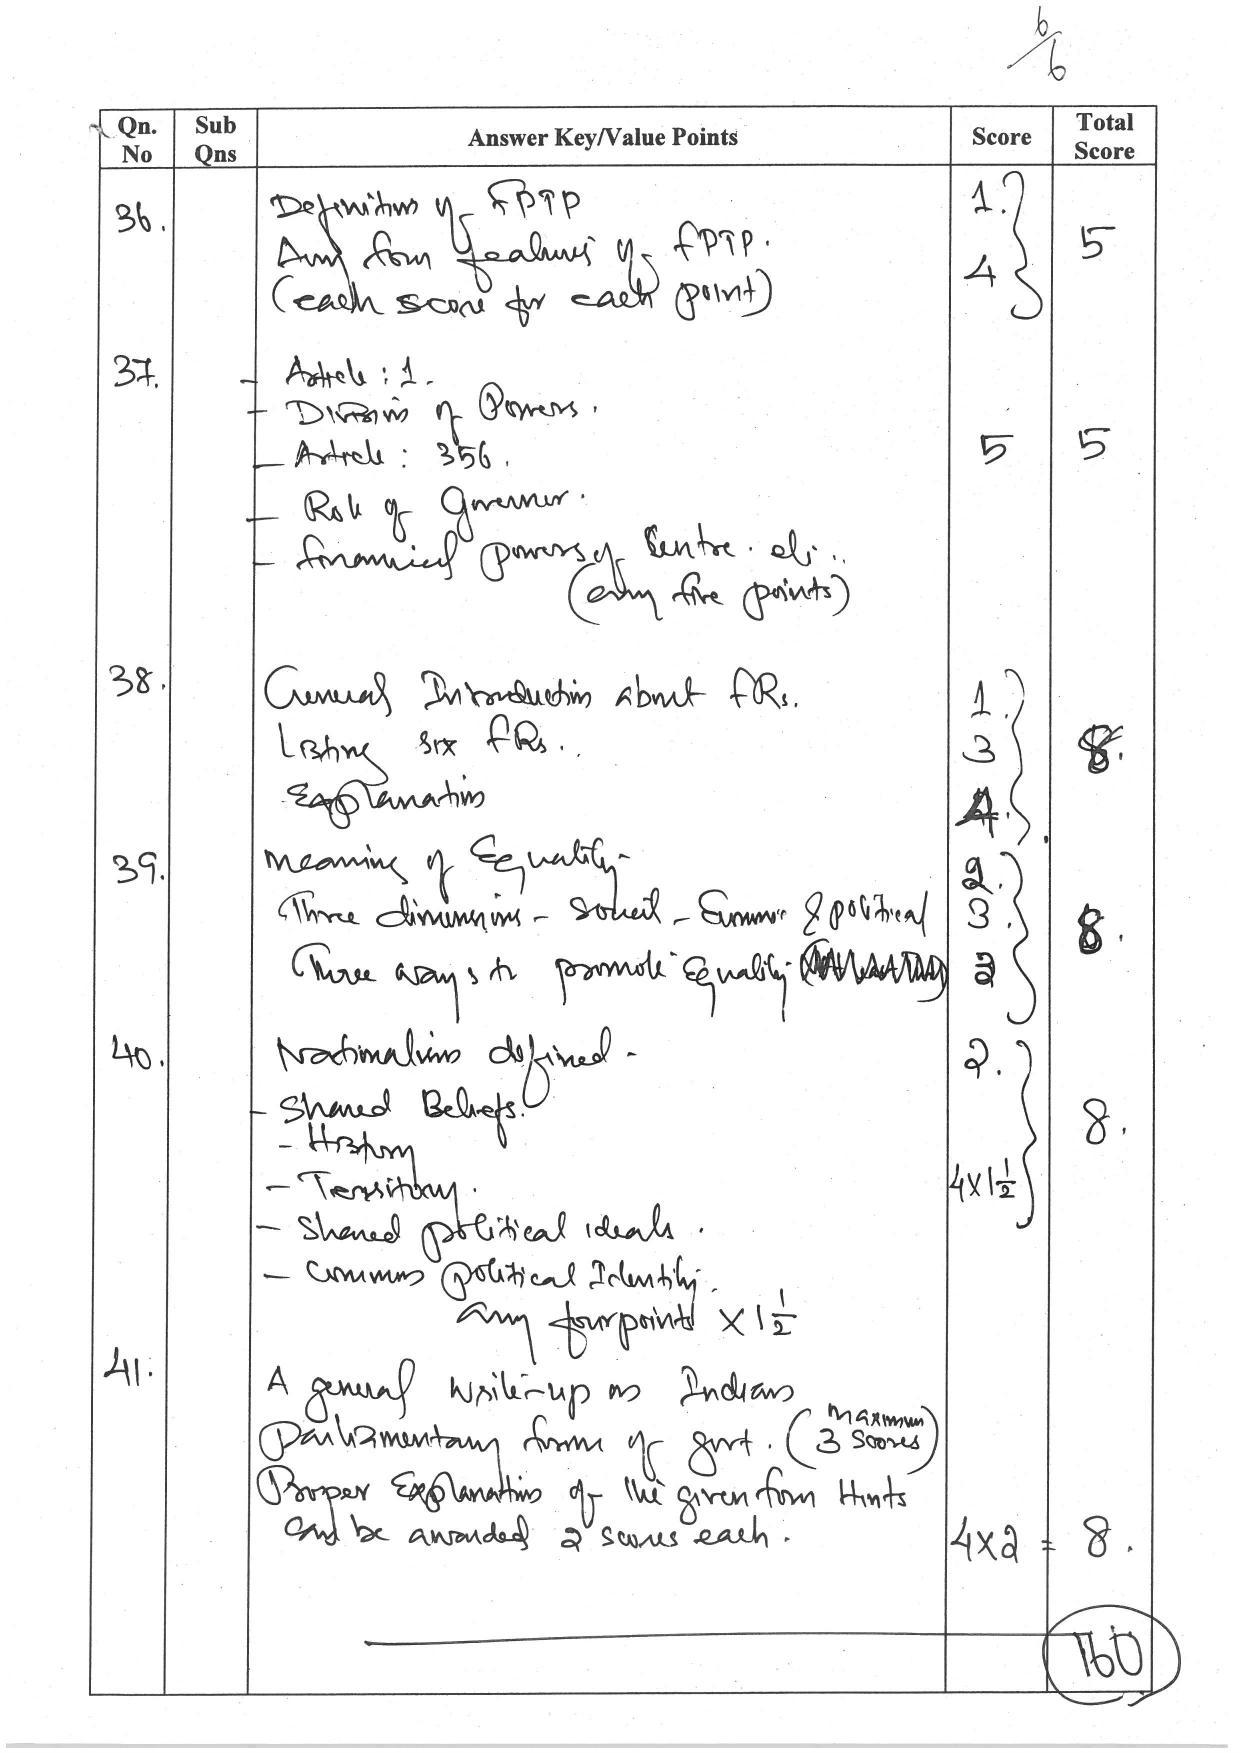 6/6
Qn. No	Sub Qns	Answer Key/Value Points	Score	Total Score
36.	Definition of FPTP	1.
Any four features of FPTP.	4	5
(each score for each point)
37.	- Article : 1.
- Division of Powers.
- Article : 356.	5	5
- Role of Governer.
- Financial powers of Centre. etc..
(any five points)
38.	General Introduction about FRs.	1.
Listing six FRs..	3	8.
Explanation	4.
39.	Meaning of Equality-	2.
Three dimensions - Social - Economic & political	3.	8.
Three ways to promote Equality
40.	Nationalism defined -	2.
- Shared Beliefs.	8.
- History
- Territory.	4x1½
- Shared political ideals.
- Common political Identity.
any four points x 1½
41.	A general write-up on Indian
Parliamentary form of govt. (Maximum 3 Scores)
Proper Explanation of the given four Hints
can be awarded 2 scores each.	4x2 = 8.
160